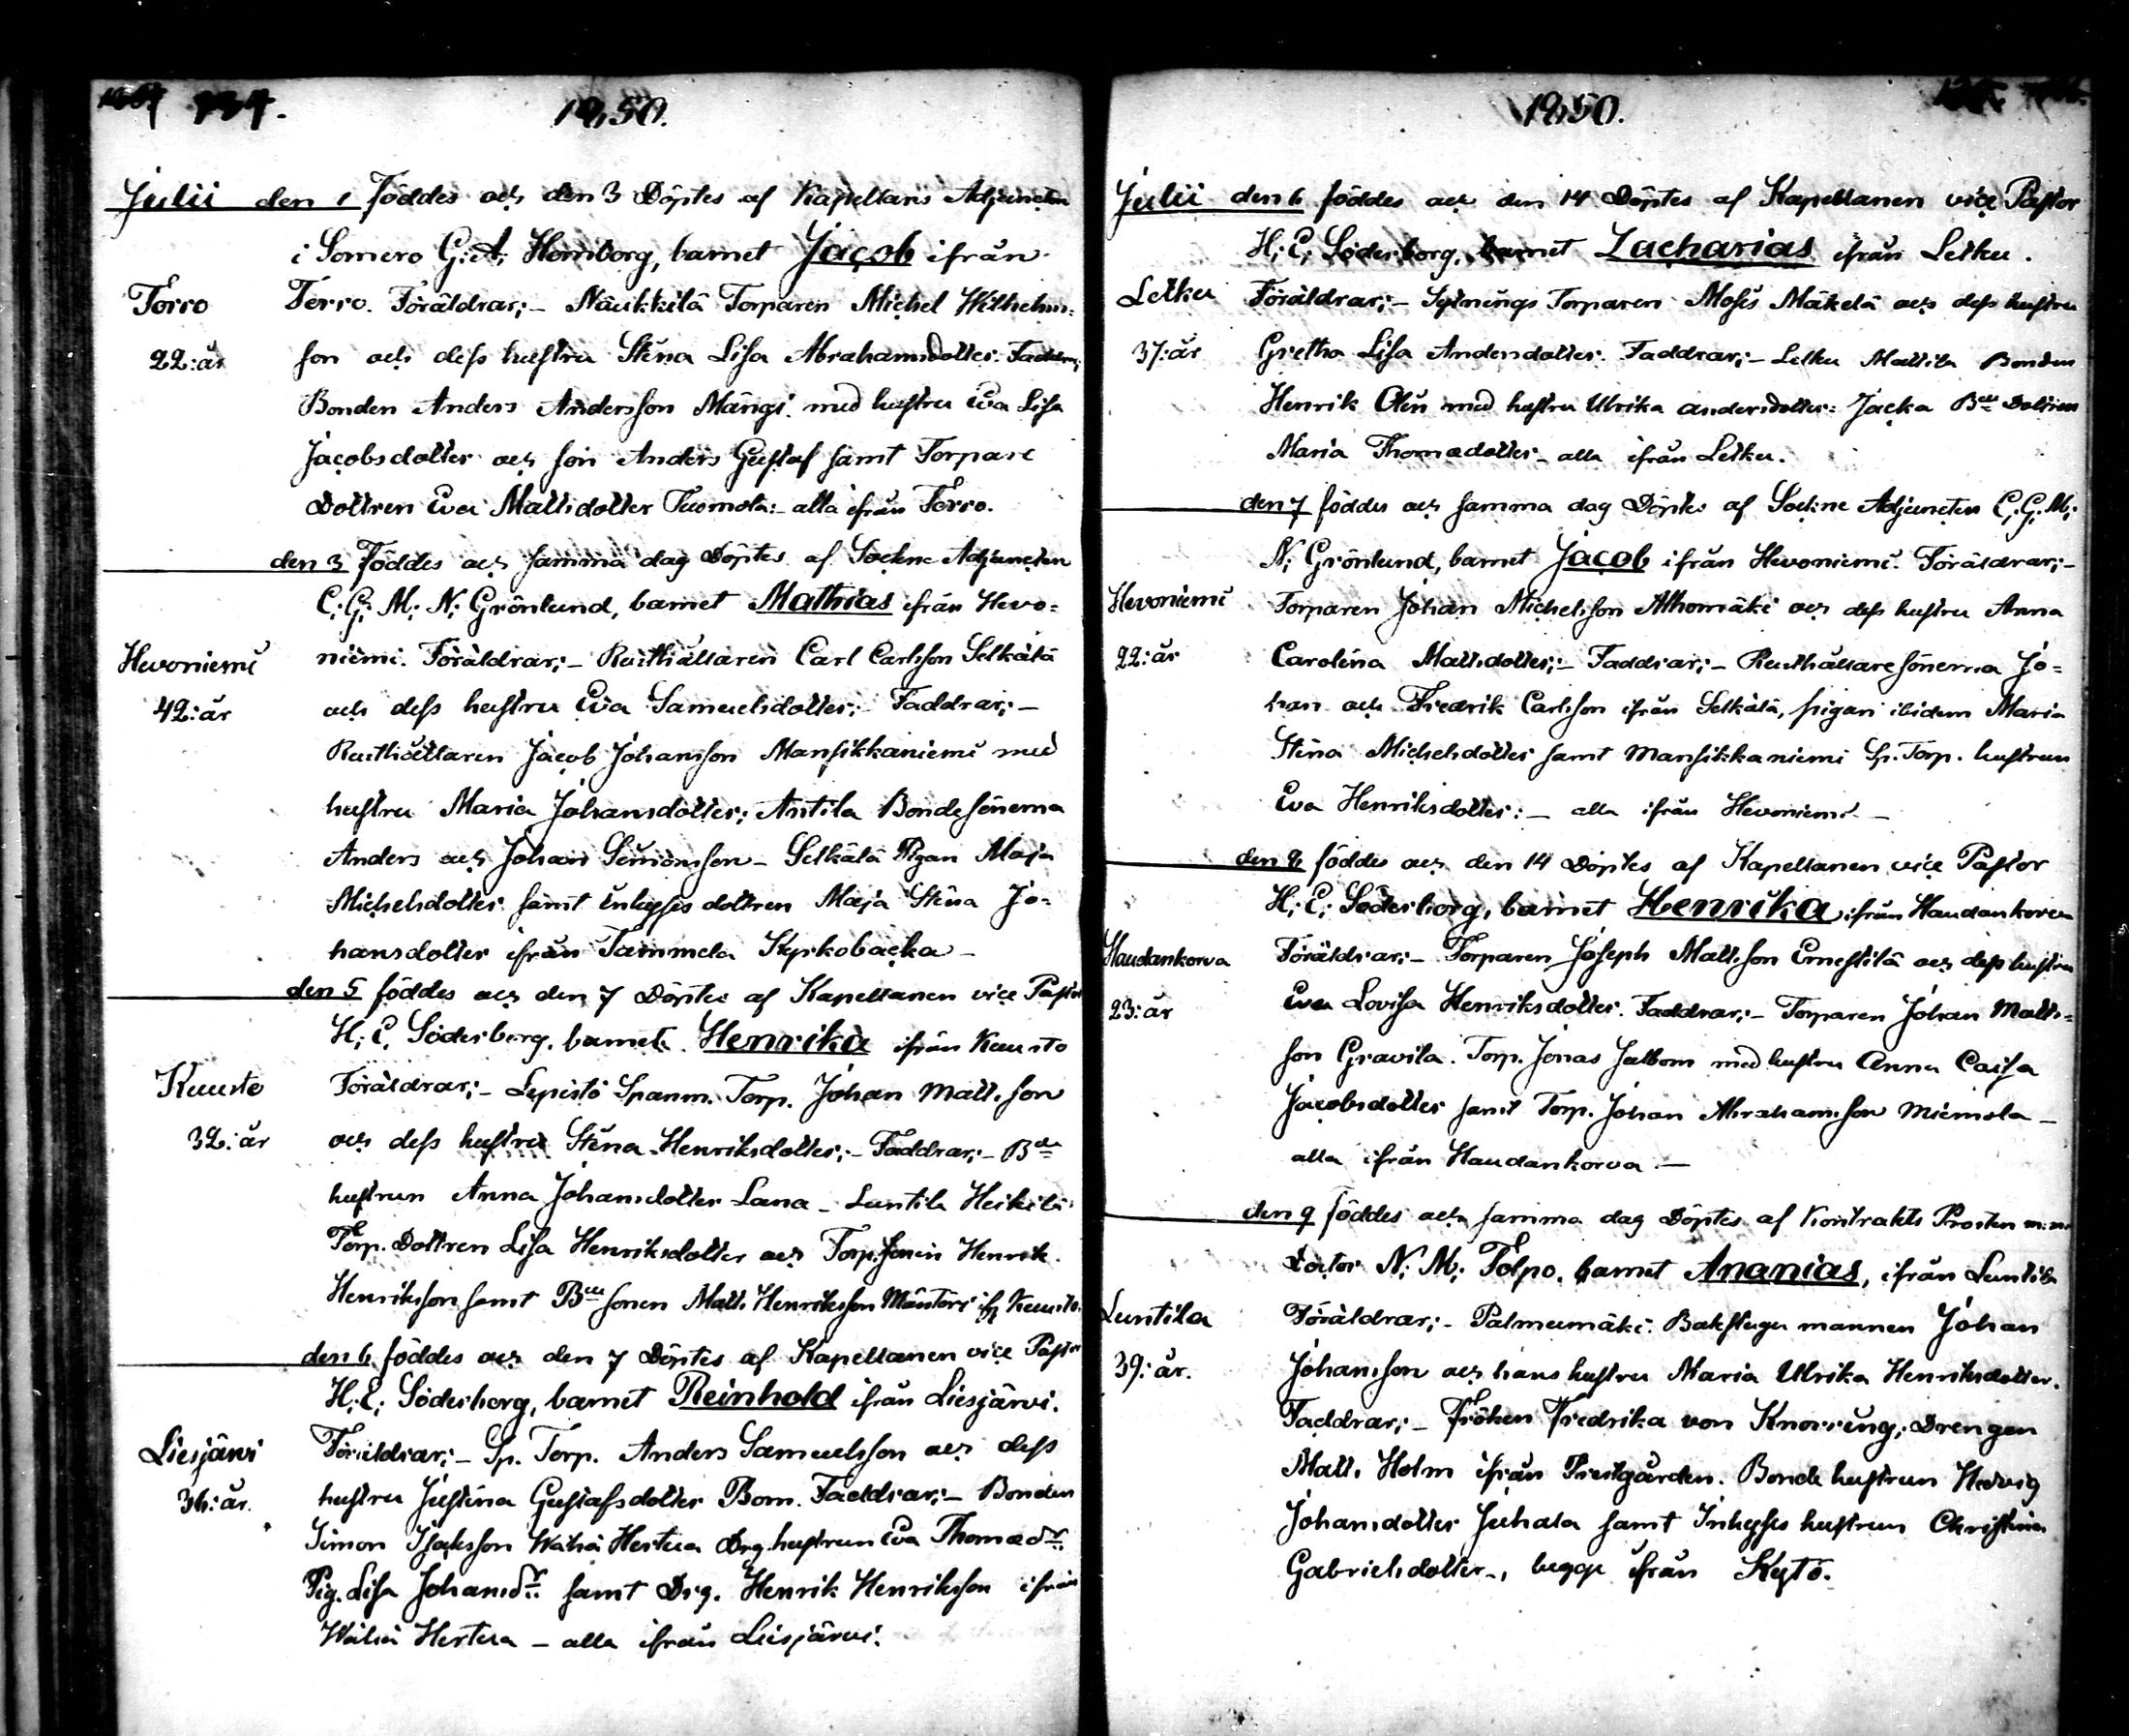 734. 1850.
Julii den 1 Föddes och den 3 Döptes af Kapellans Adjuncten
i Somero G: A: Homborg, barnet Jacob ifrån
Torro Torro. Föräldrar;- Näukkilä Torparen Michel Wilhelms-
22: år son och dess hustru Stina Lisa Abrahamsdotter. Faddrar;
Bonden Anders Andersson Mängi med hustru Eva Lisa
Jacobsdotter och son Anders Gustaf samt Torpare
Dottren Eva Mattsdotter Tuomola:- alla ifrån Torro.
den 3 Föddes och samma dag Döptes af Sockne Adjuncten
C: G: M: N: Grönlund, barnet Mathias ifrån Hevo=
Hevoniemi niemi. Föräldrar;- Rusthållaren Carl Carlsson Selkälä
42: år och dess hustru Eva Samuelsdotter;- Faddrar;-
Rusthållaren Jacob Johansson Mansikkaniemi med
hustru Maria Johansdotter; Antila Bondesönerna
Anders och Johan Simonsson - Selkälä Pigan Maja
Michelsdotter samt Inhyses dottren Maja Stina Jo=
hansdotter ifrån Tammela Kyrkobacka -
den 5 föddes och den 7 Döptes af Kapellanen vice Pastor
H: E: Söderborg, barnet Henrika ifrån Kuusto
Kuusto Föräldrar;- Lepistö Spanm. Torp. Johan Matts son
32: år och dess hustru Stina Henriksdotter;- Faddrar;- Bde
hustrun Anna Johansdotter Lana - Luntila Heikilä
Torp. Dottren Lisa Henriksdotter och Torp. sonen Henrik
Henriksson samt Bde sonen Matts Henriksson Mäntöri ifr Kuusto.
den 6 föddes och den 7 Döptes af Kapellanen vice Pastor
H: E: Söderborg, barnet Reinhold ifrån Liesjärvi.
Liesjärvi Föräldrar;- Sp. Torp. Anders Samuelsson och dess
36: år. hustru Justina Gustafsdotter Bom. Faddrar;- Bonden
Simon Isaksson Wähä Hertua Drg. hustrun Eva Thomædr
Pig. Lisa Johansdr samt Drg. Henrik Henriksson ifrån
Wähä Hertua - alla ifrån Liesjärvi.
1850.
Julii den 6 föddes och den 14 Döptes af Kapellanen vice Pastor
H: E: Söderborg, barnet Zacharias ifrån Letku.
Letku Föräldrar;- Sytnings Torparen Moses Mäkelä och dess hustru
37: år Gretha Lisa Andersdotter. Faddrar;- Letku Mattila Bonden
Henrik Olin med hustru Ulrika andersdotter: Jacka Bde Dottren
Maria Thomædotter - alla ifrån Letku.
den 7 föddes och samma dag Döptes af Sockne Adjuncten C: G: M:
N: Grönlund, barnet Jacob ifrån Hevoniemi. Föräldrar;-
Hevoniemi Torparen Johan Michelsson Ahomäki och dess hustru Anna
22: år Carolina Mattsdotter;- Faddrar;- Rusthållaresönerna Jo=
han och Fredrik Carlsson ifrån Selkälä, pigan ibidem Maria
Stina Michelsdotter samt Mansikkaniemi Sp. Torp. hustrun
Eva Henriksdotter:- alla ifrån Hevoniemi -
den 8 föddes och den 14 Döptes af Kapellanen vice Pastor
H: E: Söderborg, barnet Henrika ifrån Haudankorva
Haudankorva Föräldrar;- Torparen Joseph Mattsson Ernestilä och dess hustru
23: år Eva Lovisa Henriksdotter. Faddrar;- Torparen Johan Matts=
son Gravila. Torp. Jonas Jalbom med hustru Anna Caisa
Jacobsdotter samt Torp. Johan Abrahamsson Miemola -
alla ifrån Haudankorva. -
den 9 föddes och samma dag Döptes af Kontrakts Prosten m:m:
Doctor N: M: Tolpo, barnet Ananias, ifrån Luntila
Luntila Föräldrar;- Palmumäki: Bakstugu mannen Johan
39: år. Johansson och hans hustru Maria Ulrika Henriksdotter.
Faddrar;- Fröken Fredrika von Knorring, Drengen
Matts Holm ifrån Prestgården. Bonde hustrun Hedvig
Johansdotter Juhala samt Inhyses hustrun Christina
Gabrielsdotter, begge ifrån Kytö.